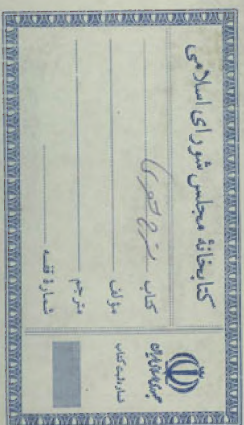 کتابخانهٔ مجلس شورای اسلامی
کتاب شرح
مؤلف
مترجم
شمارهٔ قفسه
جمهوری اسلامی ایران
شماره ثبت کتاب